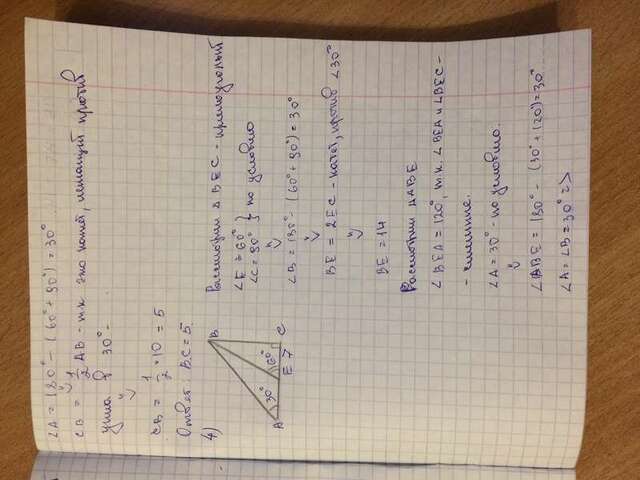 ∠A = 180° - (60° + 90°) = 30°
⇓
CB = 1/2 AB - т.к это катет, лежащий против
угла в 30°-
⇓
CB = 1/2 · 10 = 5
Ответ: BC = 5.
4)
B
A 30° 60° C
E 7
Рассмотрим △ BEC - прямоугольный
∠E = 60° }
∠C = 90° } по условию
⇓
∠B = 180° - (60° + 90°) = 30°
⇓
BE = 2EC - катет, против ∠30°
⇓
BE = 14
Рассмотрим △ABE
∠BEA = 120°, т.к. ∠BEA и ∠BEC -
- смежные.
∠A = 30° - по условию.
⇓
∠ABE = 180° - (30° + 120°) = 30°
∠A = ∠B = 30° =>